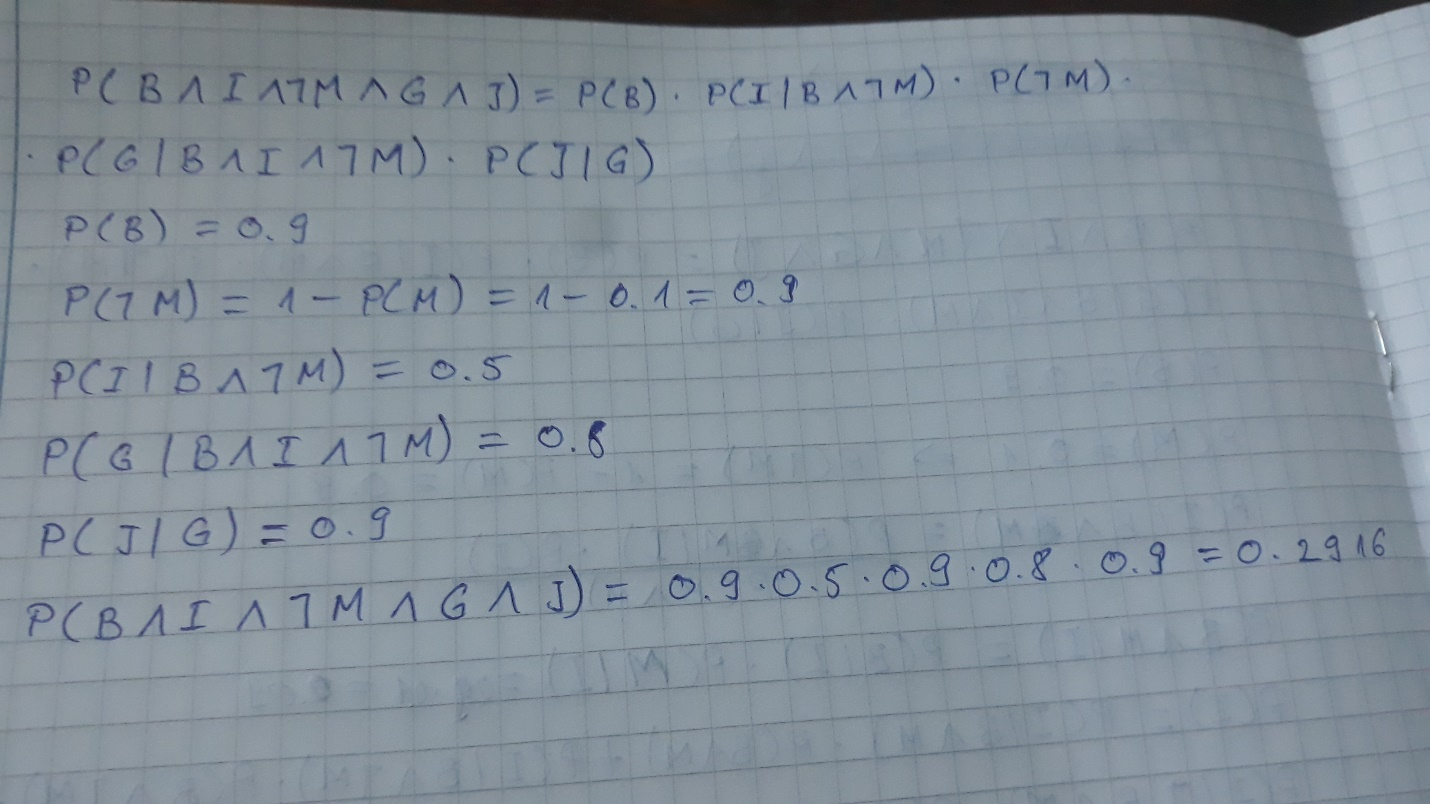 P(B∧I∧¬M∧G∧J) = P(B) · P(I|B∧¬M) · P(¬M) ·
· P(G|B∧I∧¬M) · P(J|G)
P(B) = 0.9
P(¬M) = 1 - P(M) = 1 - 0.1 = 0.9
P(I|B∧¬M) = 0.5
P(G|B∧I∧¬M) = 0.8
P(J|G) = 0.9
P(B∧I∧¬M∧G∧J) = 0.9·0.5·0.9·0.8·0.9 = 0.2916